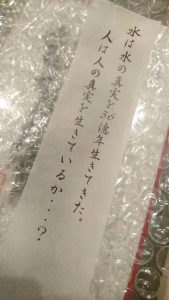 水は水の真実を36億年生きてきた。
人は人の真実を生きているか・・・?